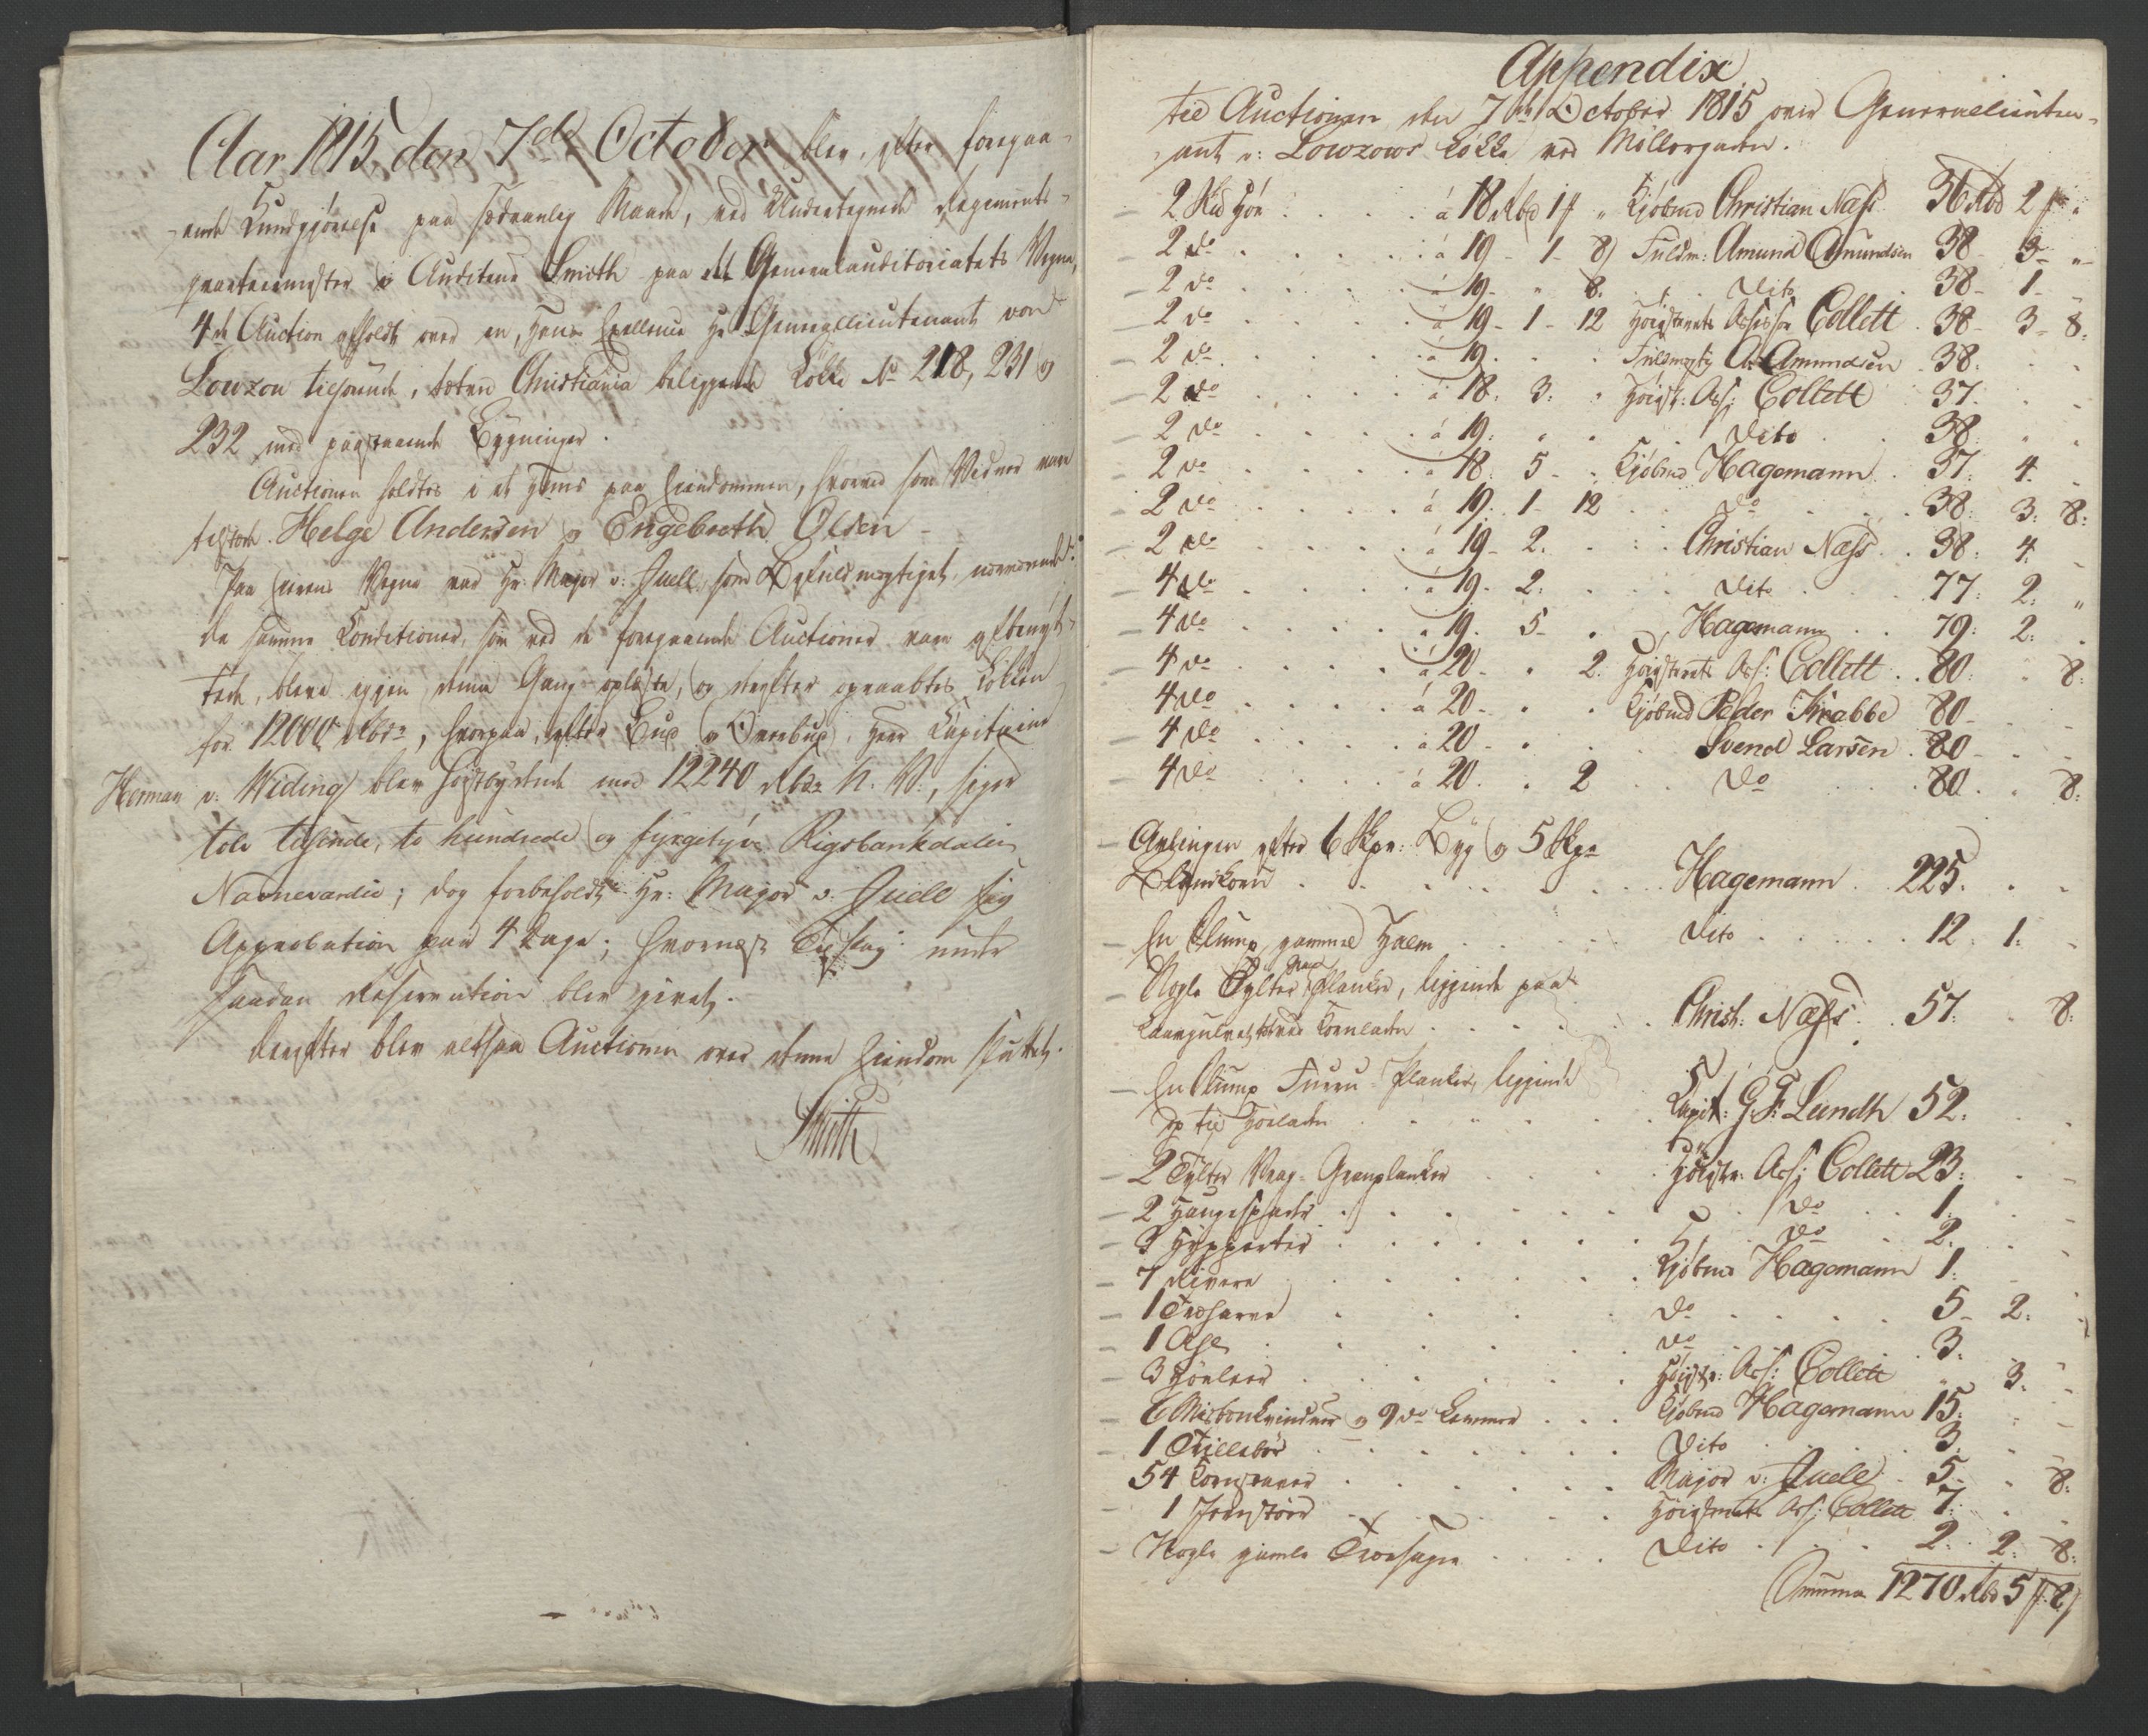 Aar 1815, den 7de October blev, efter foregaa-
ende Kundgjørelse paa sædvanlig Maade, ved Undertegnede Regiments-
qvarteermester og Auditeur Smith paa det Generalauditoriatets Vegne,
4de Auction afholdt over en, Hans Excellence Hr. Generallieutenant von
Lowzow tilhørende, Christiania beliggende Løkke No 218, 231 og
232 med paastaaende Bygninger.
Auctionen holdtes i et Huus paa Eiendommen, hvorved som Vidner vare
tilstede Helge Andersen og Engebreth Olsen
Paa Eierens Vegne var Hr. Major v: Juell som Befuldmægtiget nærværende.
De samme Conditioner, som ved de foregaaende Auctioner vare afbenyt-
tede, bleve igjen denne Gang oplæste, og derefter opraabtes Løkken
for 12000 Rbdr, hvorpaa, efter Bud og Overbud, Herr Kapitaine
Herman v: Widing blev høistbydende med 12240 Rbdr N. V., siger
tolv tusinde, to hundrede og fyrgetyve Rigsbankdaler
Navneværdie; dog forbeholdt Hr: Major v: Juell sig
Approbation paa 4 Dage; hvornæst Tilslag under
saadan Reservation blev givet.
Derefter blev altsaa Auctionen over denne Eiendom sluttet.
Smith
Appendix
til Auctionen den 7de October 1815 over Generallieuten-
ant v: Lowzows Løkke ved Møllergaden.
2 Skd Høe . . . . á 18 Rbd 1 " Kjøbmd Christian Næss 36 Rbd 2 "
2 do . . . . á 19 - 1 - 8 Fuldm: Amund Amundsen 38 - 3 - "
2 do . . . . á 19 - " 8. . . Dito . 38 - 1 -
2 do . . . . á 19 - 1 - 12 Høiesterets Assessor Collett . 38 - 3 - 8:
2 do . . . . á 19 . . . Fuldmægtig A: Amundsen . 38. . .
2 do . . . . á 18. 3: . Høiest: Ass: Collett 37. . .
2 do . . . . á 19: . . . Dito . . 38. . .
2 do . . . . á 18. 5 - . Kjøbmd Hagemann . 37. 4. .
2 do . . . . á 19. 1 - 12 . . do . . . 38: 3: 8:
2 do . . . . á 19 - 2. . . Christian Næss . . 38: 4: -
4 do . . . . á 19 - 2. . . . Dito . . 77: 2: "
4 do . . . . á 19. 5 - . Hagemann . . 79: 2: .
4 do . . . . á 20 - . 2. Høiesterets Ass: Collett . . 80: . 8:
4 do . . . . á 20 - . . Kjøbmd Peder Krabbe 80 - . .
4 do . . . . á 20 - . . Svend Larsen . 80 - . .
4 do . . . . á 20. . 2 . . do . . . 80. . 8:
Avlingen efter 6 Skpr: Byg og 5 Skpr
Blandkorn . . . . . . . Hagemann . 225. . .
En Klump gammel Halm . . . . . Dito . . . . 12. 1. -
Nogle Tylter Planker, liggende paa
Laavgulvet ved Kornladen . . . . . Christ: Næss . . 57. . 8:
En Klump Furru Planker, liggende
op til Høeladen . . . . . Kapit: G. F: Lundh 52. . .
2 Tylter Vrag Granplanker . . . Høiestr: Ass: Collett 23: . -
2 . . . . . . . . do . . 1. . .
3 . . . . . . . do . 2. . -
7 River . . . . . . Kjøbmd Hagemann 1. . .
1 Træharve . . . . do . . . . . 5 - 2. .
1 . . . . . . . do . . . . . 3. . .
3 Høeleer . . . . . . Høiestr: Ass: Collett . . 3. -
6 og 9 do . . . Kjøbmd Hagemann 15. . .
1 Trillebør . . . . . . Dito . . . . 3. . -
54 . . . . . . Major v: Juell . 5. . 8:
1 Jernstør . . . . . Høiesterets Ass: Collett 7. . .
Nogle gamle Træsager . . . . Dito . . . . 2. 2. 8:
Summa 1270 Rbd 5 8